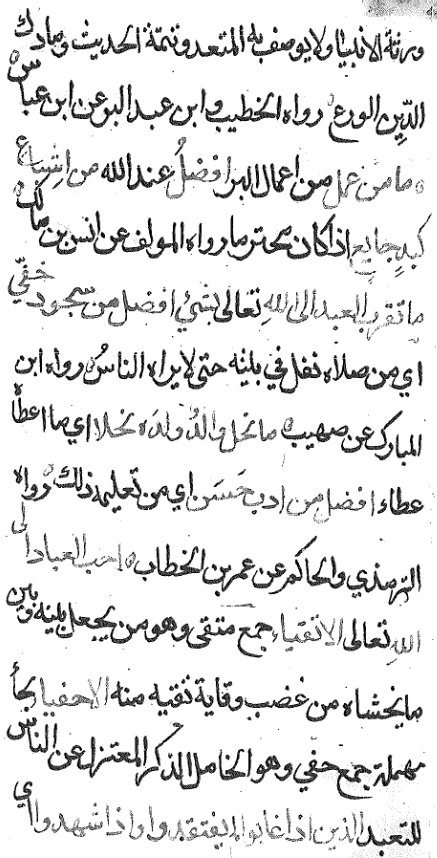 ورثة الانبيا ولا يوصف به المتعد وتتمة الحديث وملاك
الدين الورع رواه الخطيب وابن عبد البر عن ابن عباس
ما من عمل من اعمال البر افضل عند الله من اشباع
كبد جايع اذا كان محترما رواه المولف عن انس بن مالك
ما تقرب العبد الى الله تعالى بشئ افضل من سجود خفي
اي من صلاة نفل في بيته حتى لا يراه الناس رواه ابن
المبارك عن صهيب ما نحل والد ولده نحلا اي ما اعطا
عطاء افضل من ادب حسن اي من تعليمه ذلك رواه
الترمذي والحاكم عن عمر بن الخطاب احب العباد الى
الله تعالى الاتقياء جمع متقى وهو من يجعل بينه وبين
ما يخشاه من غضب وقاية تقيه منه الاحفيا بحا
مهملة جمع حفي وهو الخامل الذكر المعتزل عن الناس
للتعبد الذين اذا غابوا لم يفتقدوا واذا شهدوا اي